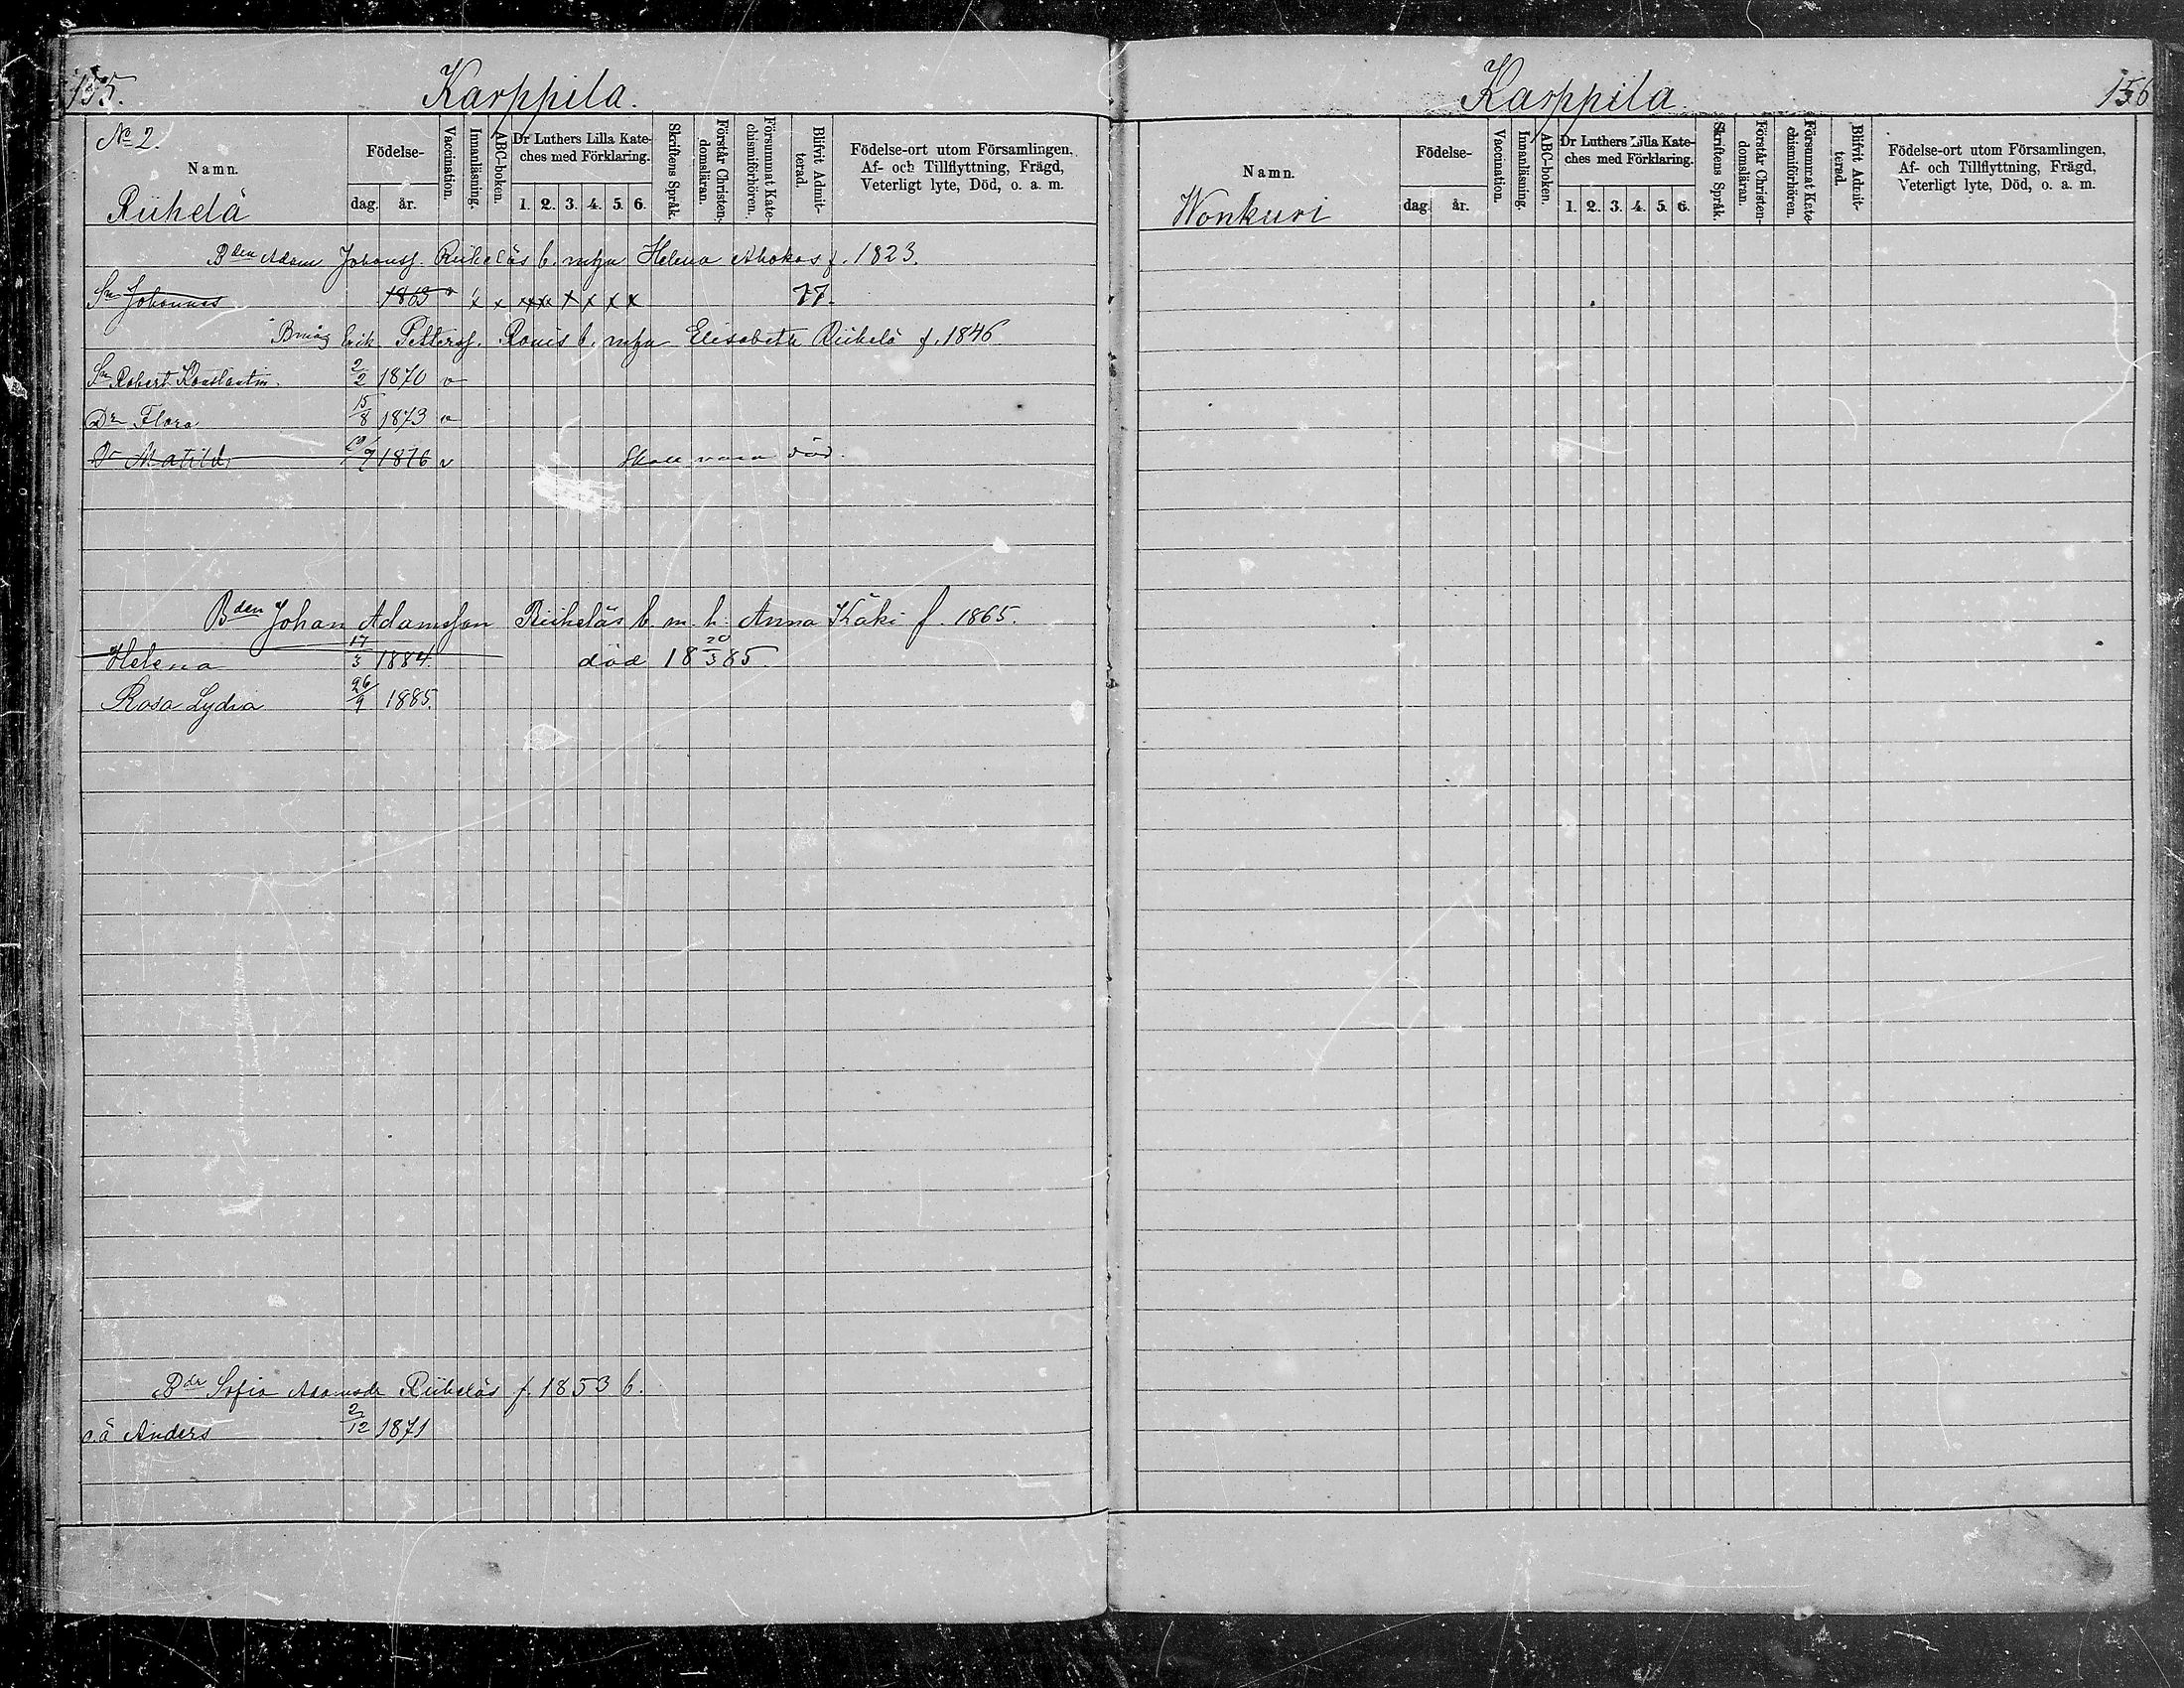 155.
Karppila.
No 2.
Namn.
Riihelä
Födelse-
dag. år.
Vaccination.
Innanläsning.
ABC-boken.
Dr Luthers Lilla Kate-
ches med Förklaring.
1. 2. 3. 4. 5. 6.
Skriftens Språk.
Förstår Christen-
domsläran.
Försummat Kate-
chismiförhören.
Blifvit Admit-
terad.
Födelse-ort utom Församlingen,
Af- och Tillflyttning, Frägd,
Veterligt lyte, Död, o. a. m.
Bden Adam Johanss. Riiheläs b. m hn Helena Ahokas f. 1823.
Sn Johannes 1863 v x x xxxx x x x x 77.
Bmåg Erik Petterss. Rouis b. m hn Elisabeth Riihelä f. 1846
Sn Robert Konstantin. 2/2 1870 v
Dr Flora 15/8 1873 v
Dr Matild 19/9 1876 v Skall vara död.
Bden Johan Adamsson Riiheläs b. m. h. Anna Käki f. 1865.
Helena 17/3 1884. död 18 20/3 85.
Rosa Lydia 26/9 1885.
Bdr Sofia Adamsdr Riiheläs f. 1853 b.
o.ä Anders 2/12 1871
Karppila
156
Namn.
Wonkuri
Födelse-
dag. år.
Vaccination.
Innanläsning.
ABC-boken.
Dr Luthers Lilla Kate-
ches med Förklaring.
1. 2. 3. 4. 5. 6.
Skriftens Språk.
Förstår Christen-
domsläran.
Försummat Kate-
chismiförhören.
Blifvit Admit-
terad.
Födelse-ort utom Församlingen,
Af- och Tillflyttning, Frägd,
Veterligt lyte, Död, o. a. m.